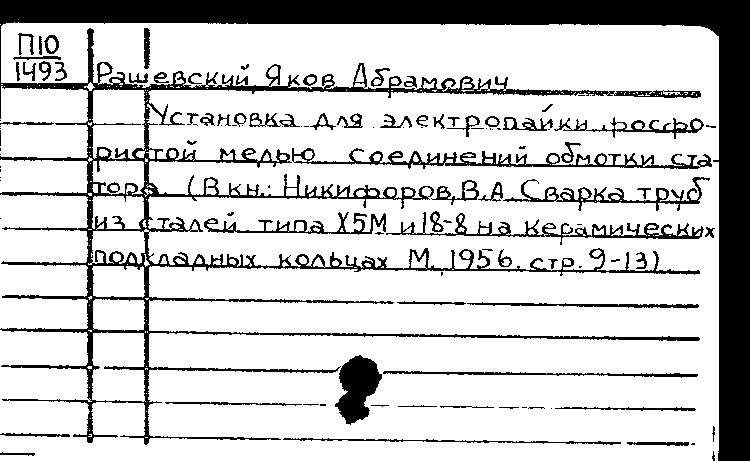 П10
1493
Рашевский, Яков Абрамович
Установка для электропайки фосфо-
ристой медью соединений обмотки ста-
тора. (В кн.: Никифоров, В.А. Сварка труб
из сталей типа Х5М и 18-8 на керамических
подкладных кольцах М., 1956. стр. 9-13)